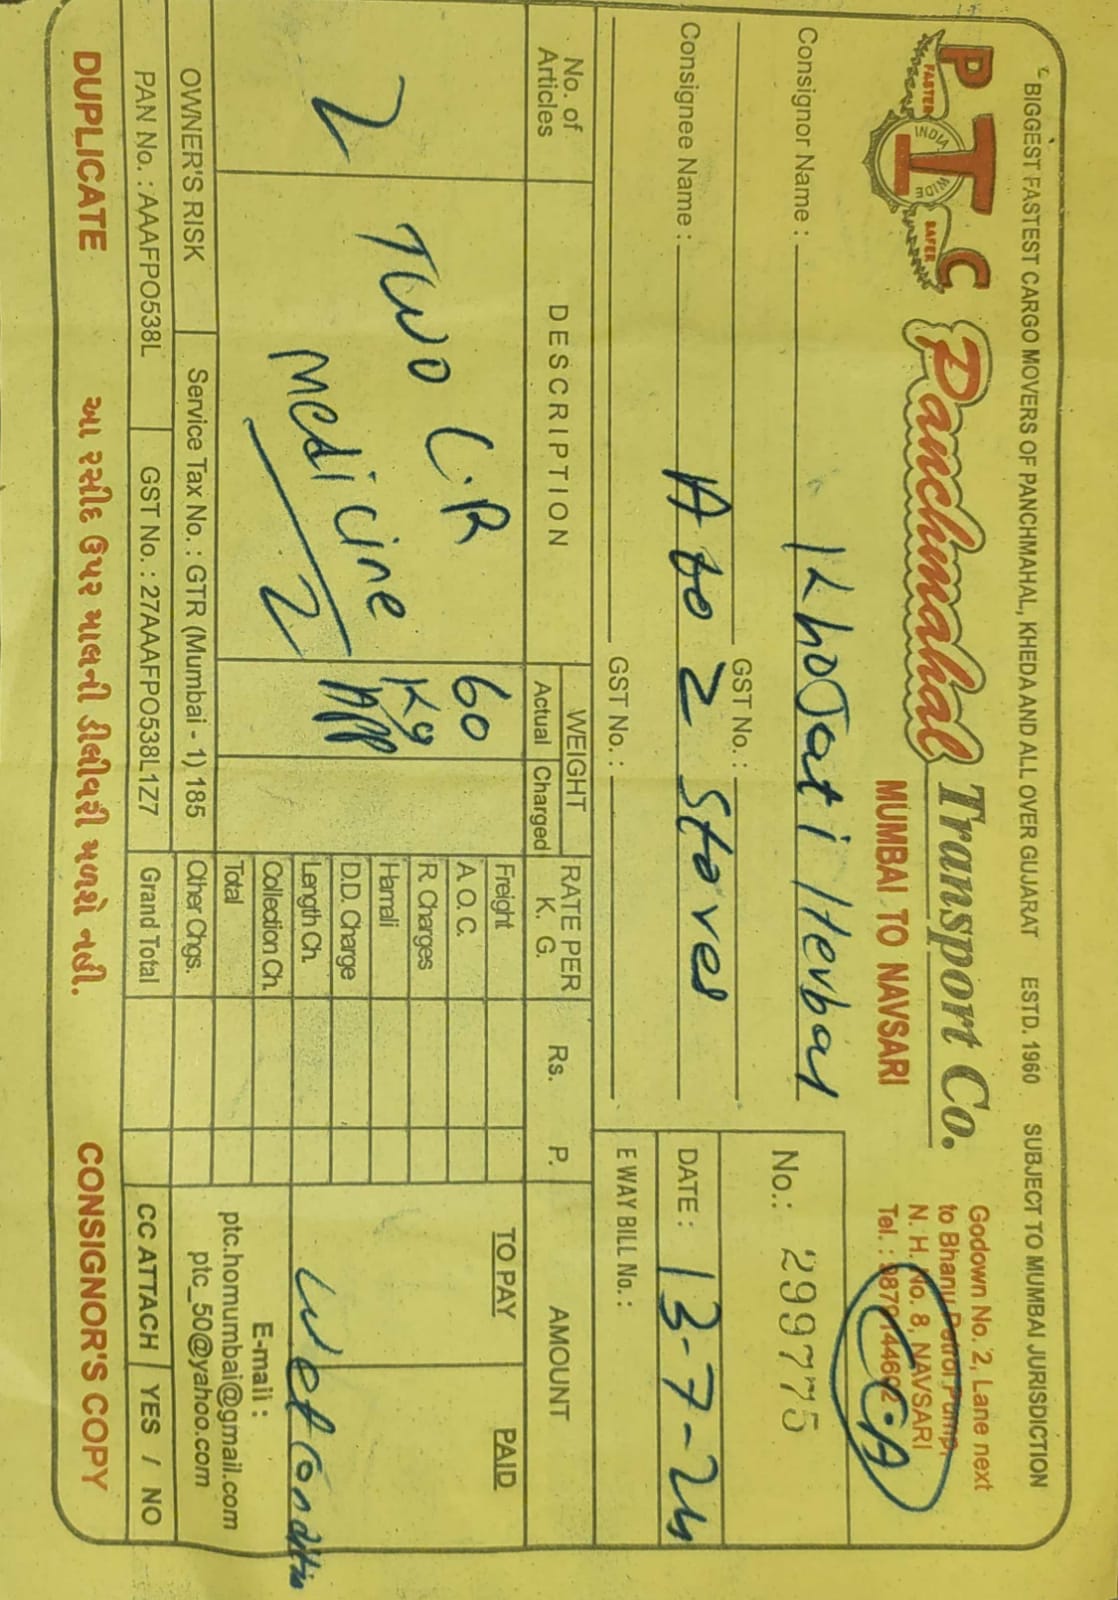 "BIGGEST FASTEST CARGO MOVERS OF PANCHMAHAL, KHEDA AND ALL OVER GUJARAT ESTD. 1960 SUBJECT TO MUMBAI JURISDICTION
PTC
FASTER INDIA WIDE SAFER
Panchmahal Transport Co.
MUMBAI TO NAVSARI
Godown No. 2, Lane next
to Bhanu Petrol Pump,
N. H. No. 8, NAVSARI
Tel. : 9870144602
C.A
Consignor Name : Khojati Herbal
No.: 299775
GST No. :
Consignee Name : A to Z Stores
DATE : 13-7-24
GST No. :
E WAY BILL No. :
No. of Articles
DESCRIPTION
WEIGHT
Actual Charged
RATE PER K. G.
Rs. P.
AMOUNT
2
TWO C.R
Medicine
2
60
Kg
APP
Freight
A. O. C.
R. Charges
Hamali
D.D. Charge
Length Ch.
Collection Ch.
Total
Other Chgs.
Grand Total
TO PAY PAID
Wet Condition
E-mail :
ptc.homumbai@gmail.com
ptc_50@yahoo.com
OWNER'S RISK Service Tax No. : GTR (Mumbai - 1) 185
PAN No. : AAAFPO538L GST No. : 27AAAFPO538L1Z7
CC ATTACH YES / NO
DUPLICATE આ રસીદ ઉપર માલની ડીલીવરી મળશે નહી. CONSIGNOR'S COPY